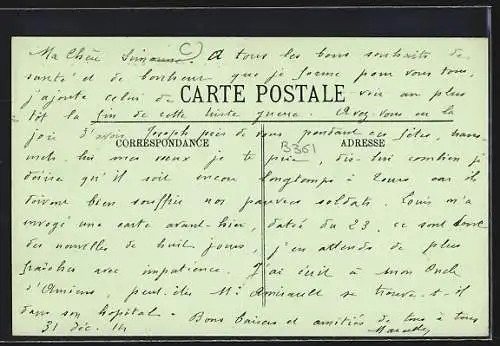 Ma Chère Simone. A tous les bons souhaits de
santé et de bonheur que je forme pour vous tous,
j'ajoute celui de voir au plus
CARTE POSTALE
tôt la fin de cette triste guerre. Avez-vous eu la
joie d'avoir Joseph près de vous pendant ces fêtes,
CORRESPONDANCE ADRESSE
B351
lui mes vœux je te prie, dis-lui combien je
désire qu'il soit encore longtemps à car ils
doivent bien souffrir nos pauvres soldats. Louis m'a
envoyé une carte avant-hier, datée du 23, ce sont donc
des nouvelles de huit jours, j'en attends de plus
fraîches avec impatience. J'ai écrit à mon Oncle
d'Amiens, peut-être Mr se trouve-t-il
dans son hôpital. Bons baisers et amitiés de tous à tous
31 déc. 14